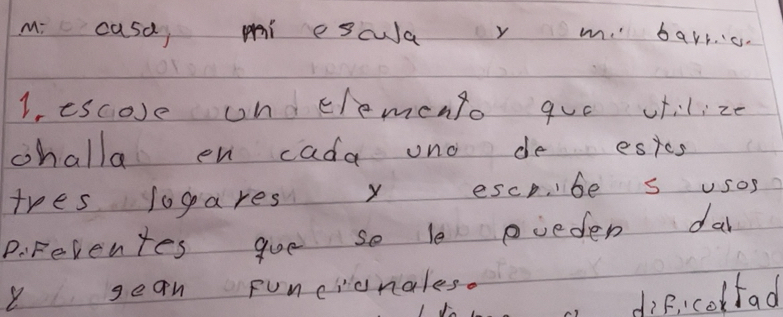 Mi casa, mi escula y mi barrio.
1. escoje un elemento que utilize
ohalla en cada uno de estes
tres logares y escribe 5 usos
Diferentes que se le pueden dar
y sean funcionales.
dificoltad